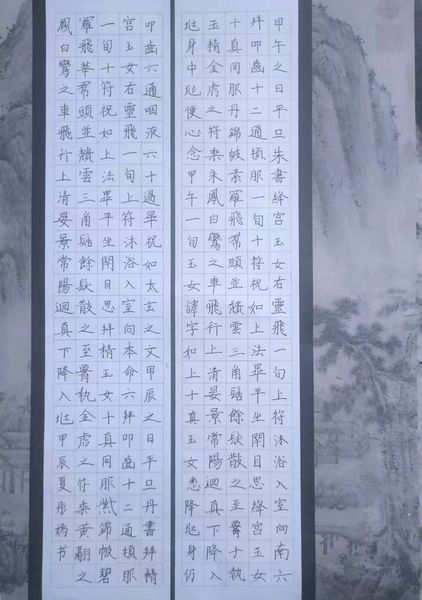 甲午之日平旦朱書絳宮玉女右靈飛一旬上符沐浴入室向南六
拜叩齒十二通頓服一旬十符祝如上法畢平坐閉目思絳宮玉女
十真同服丹錦帔素羅飛帬頭並頹雲三角髻餘髮散之至臂十執
玉精金虎之符乘朱鳳白鸞之車飛行上清晏景常陽迴真下降入
兆身中兆便心念甲午一旬玉女諱字如上十真玉女悉降兆身仍
叩齒六通咽液六十過畢祝如太玄之文甲辰之日平旦丹書拜精
宮玉女右靈飛一旬上符沐浴入室向本命六拜叩齒十二通頓服
一旬十符祝如上法畢平坐閉目思拜精玉女十真同服紫錦帔碧
羅飛華帬頭並頹雲三角髻餘髮散之至臂執金虎之符乘黃翮之
鳳白鸞之車飛行上清晏景常陽迴真下降入兆甲辰夏彤书